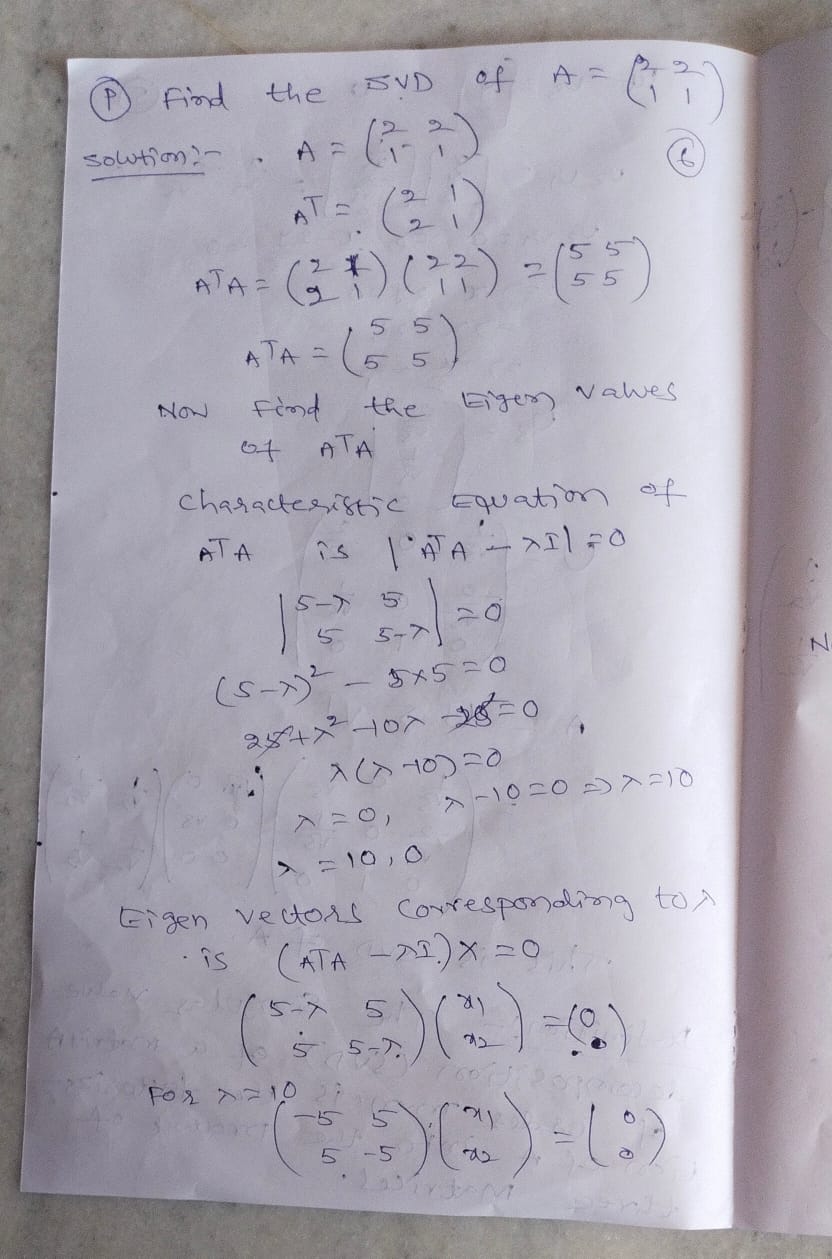 (P) Find the SVD of A = (2 2
1 1)
Solution:- . A = (2 2
1 1) (6)
AT = (2 1
2 1)
ATA = (2 1
2 1) (2 2
1 1) = (5 5
5 5)
ATA = (5 5
5 5)
Now Find the Eigen values
of ATA
Characteristic Equation of
ATA is |ATA - λI| = 0
|5-λ 5
5 5-λ| = 0
(5-λ)² - 5×5 = 0
25 + λ² - 10λ - 25 = 0
λ(λ-10) = 0
λ = 0, λ - 10 = 0 => λ = 10
λ = 10, 0
Eigen vectors corresponding to λ
is (ATA - λI) X = 0
(5-λ 5
5 5-λ) (x1
x2) = (0
0)
For λ = 10
(-5 5
5 -5) (x1
x2) = (0
0)
N